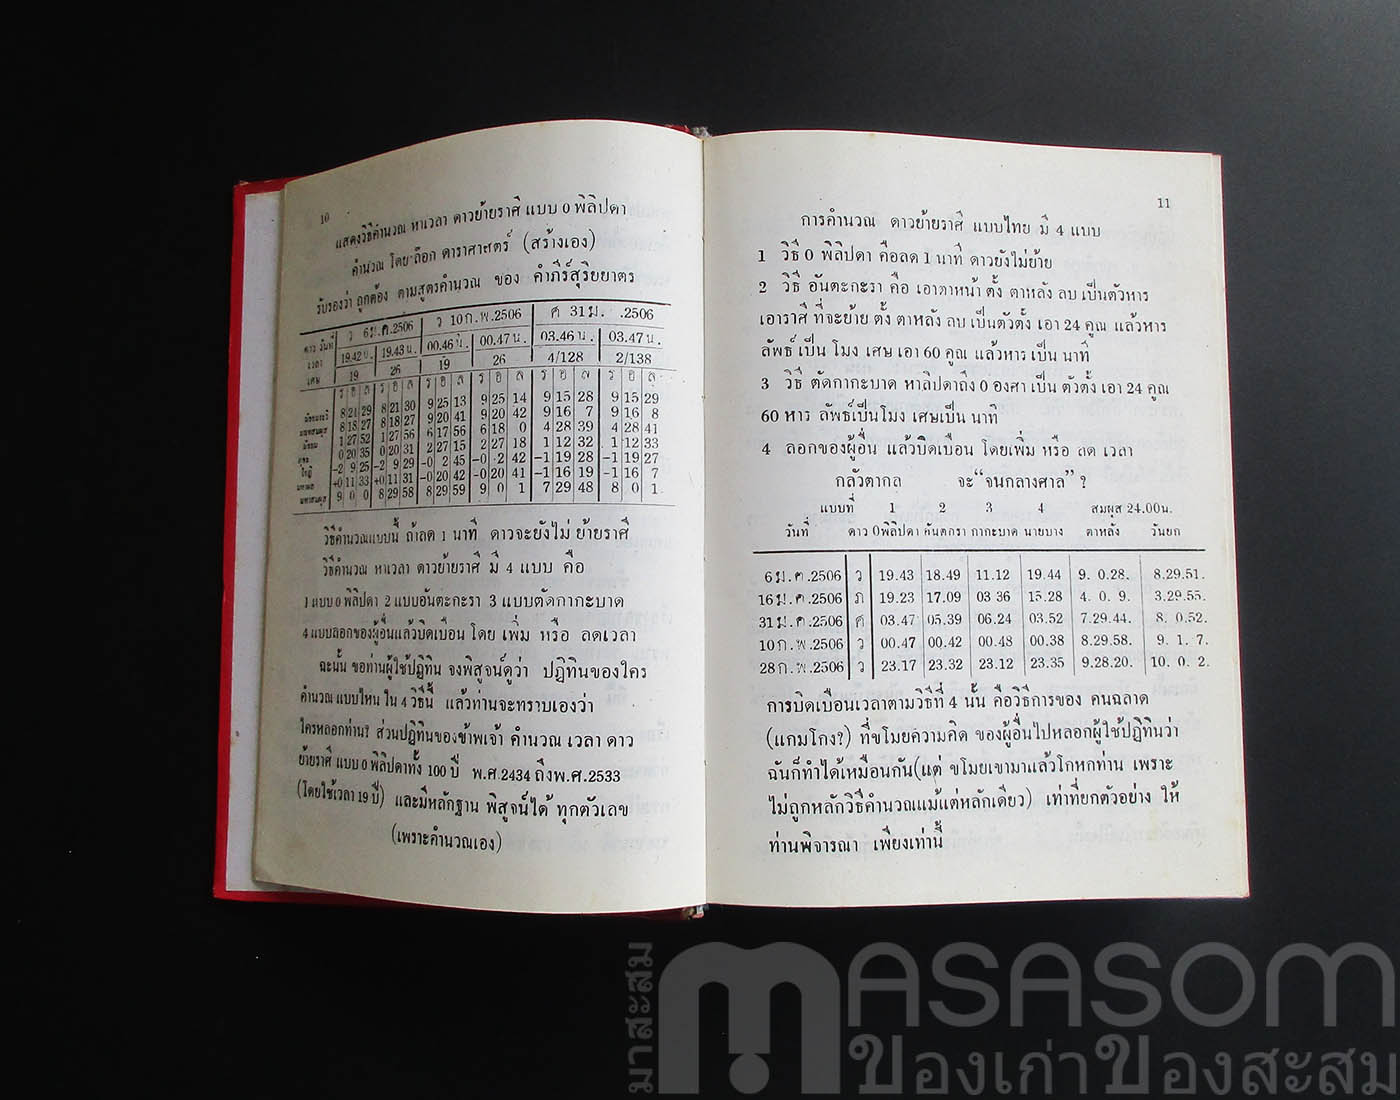 10
แสดงวิธีคำนวณ หาเวลา ดาวย้ายราศี แบบ 0 พิลิปดา
คำนวณ โดย ล๊อก ดาราศาสตร์ (สร้างเอง)
รับรองว่า ถูกต้อง ตามสูตรคำนวณ ของ คำภีร์สุริยยาตร
ดาว วันที่ ว 6ม.ค.2506 ว 10ก.พ.2506 ศ 31ม. .2506
เวลา 19.42น. 19.43น. 00.46น. 00.47น. 03.46น. 03.47น.
เศษ 19 26 19 26 4/128 2/138
ร อ ล ร อ ล ร อ ล ร อ ล ร อ ล ร อ ล
8 21 29 8 21 30 9 25 13 9 25 14 9 15 28 9 15 29
8 18 27 8 18 27 9 20 41 9 20 42 9 16 7 9 16 8
1 27 52 1 27 56 6 17 56 6 18 0 4 28 39 4 28 41
มัธยม 0 20 35 0 20 31 2 27 15 2 27 18 1 12 32 1 12 33
-2 9 25 -2 9 29 -0 2 45 -0 2 42 -1 19 28 -1 19 27
+0 11 33 +0 11 31 -0 20 42 -0 20 41 -1 16 19 -1 16 7
9 0 0 8 29 58 8 29 59 9 0 1 7 29 48 8 0 1
วิธีคำนวณแบบนี้ ถ้าลด 1 นาที ดาวจะยังไม่ ย้ายราศี
วิธีคำนวณ หาเวลา ดาวย้ายราศี มี 4 แบบ คือ
1 แบบ 0 พิลิปดา 2 แบบอันตะกะรา 3 แบบตัดกากะบาด
4 แบบลอกของผู้อื่นแล้วบิดเบือน โดย เพิ่ม หรือ ลดเวลา
ฉะนั้น ขอท่านผู้ใช้ปฏิทิน จงพิสูจน์ดูว่า ปฏิทินของใคร
คำนวณ แบบไหน ใน 4 วิธีนี้ แล้วท่านจะทราบเองว่า
ใครหลอกท่าน? ส่วนปฏิทินของข้าพเจ้า คำนวณ เวลา ดาว
ย้ายราศี แบบ 0 พิลิปดาทั้ง 100 ปี พ.ศ 2434 ถึงพ.ศ.2533
(โดยใช้เวลา 19 ปี) และมีหลักฐาน พิสูจน์ได้ ทุกตัวเลข
(เพราะคำนวณเอง)
11
การคำนวณ ดาวย้ายราศี แบบไทย มี 4 แบบ
1 วิธี 0 พิลิปดา คือลด 1 นาที ดาวยังไม่ย้าย
2 วิธี อันตะกะรา คือ เอาตาหน้า ตั้ง ตาหลัง ลบ เป็นตัวหาร
เอาราศี ที่จะย้าย ตั้ง ตาหลัง ลบ เป็นตัวตั้ง เอา 24 คูณ แล้วหาร
ลัพธ์ เป็น โมง เศษ เอา 60 คูณ แล้วหาร เป็น นาที
3 วิธี ตัดกากะบาด หาลิปดาถึง 0 องศา เป็น ตัวตั้ง เอา 24 คูณ
60 หาร ลัพธ์เป็นโมง เศษเป็น นาที
4 ลอกของผู้อื่น แล้วบิดเบือน โดยเพิ่ม หรือ ลด เวลา
กลัวตากล จะ "จนกลางศาล" ?
แบบที่ 1 2 3 4 สมผุส 24.00น.
วันที่ ดาว 0พิลิปดา คันตกรา กากะบาด นายบาง ตาหลัง วันยก
6ม.ค.2506 ว 19.43 18.49 11.12 19.44 9. 0.28. 8.29.51.
16ม.ค.2506 ภ 19.23 17.09 03 36 15.28 4. 0. 9. 3.29.55.
31ม.ค.2506 ศ 03.47 05.39 06.24 03.52 7.29.44. 8. 0.52.
10ก.พ.2506 ว 00.47 00.42 00.48 00.38 8.29.58. 9. 1. 7.
28ก.พ.2506 ว 23.17 23.32 23.12 23.35 9.28.20. 10. 0. 2.
การบิดเบือนเวลาตามวิธีที่ 4 นั้น คือวิธีการของ คนฉลาด
(แกมโกง?) ที่ขโมยความคิด ของผู้อื่นไปหลอกผู้ใช้ปฏิทินว่า
ฉันก็ทำได้เหมือนกัน(แต่ ขโมยเขามาแล้วโกหกท่าน เพราะ
ไม่ถูกหลักวิธีคำนวณแม้แต่หลักเดียว) เท่าที่ยกตัวอย่าง ให้
ท่านพิจารณา เพียงเท่านี้
มาสะสม
masasom
ของเก่าของสะสม